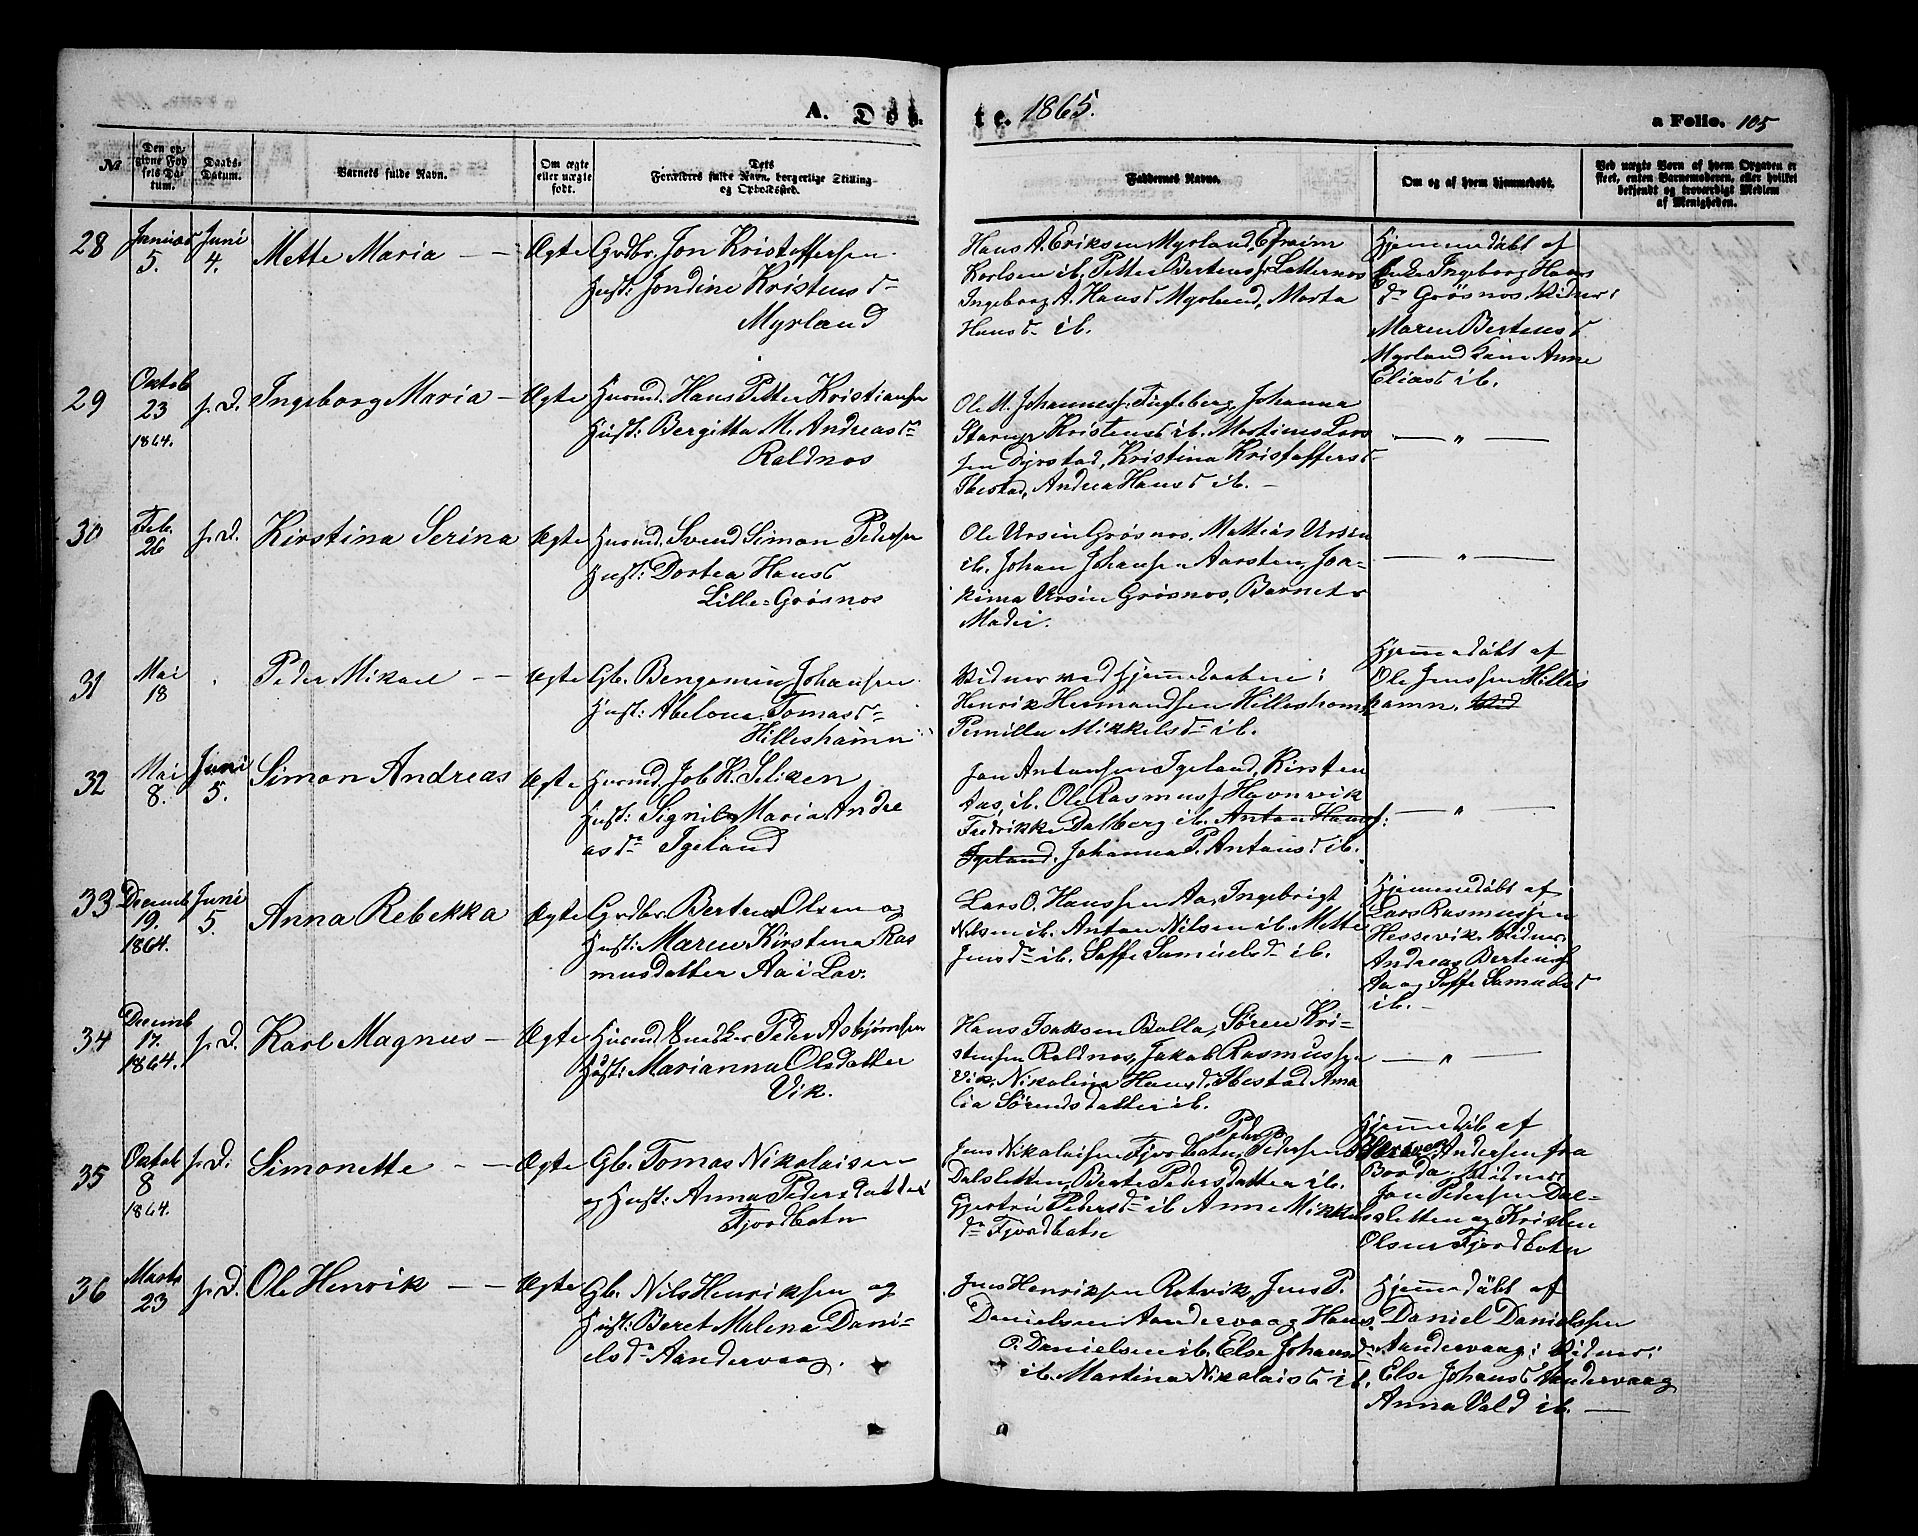 A. Döb
te. 1865.
a Folio. 105
No
Den opgivne Fødsels Datum.
Daabs-Datum.
Barnets fulde Navn.
Om ægte eller uægte født.
Dets Forældres fulde Navn, borgerlige Stilling og Opholdssted.
Faddernes Navne.
Om og af hvem hjemmedøbt.
Ved uægte Børn af hvem Opgaven er skeet, enten Barnemoderen, eller hvilket bekjendt og troværdigt Medlem af Menigheden.
28
Januar 5.
Juni 4.
Mette Maria
Ægte
Grdbr. Jon Kristoffersen
Hust: Jondine Kristensd
Myrland
Hans A. Eriksen Myrland, Efraim
Karlsen ib. Petter Bertenss. Latternos
Ingeborg A. Hansd Myrland, Marta
Hansd ib.
Hjemmedöbt af
Ingeborg Hans
d Grösnos, Vidner:
Maren Bertensd
Myrland Anne
Eliasd ib.
29
Oktob 23 1864.
s. D.
Ingeborg Maria
Ægte
Husmd. Hans Petter Kristiansen
Hust: Bergitta M. Andreasd
Roldnos
Ole M. Johanness. Fugleberg, Johanna
Kristensd ib. Martinus Lars
sen Dyrstad, Kristina Kristoffersd
Ibestad, Andrea Hansd ib.
"
30
Feb. 26
s. D.
Kirstina Serina
Ægte
Husmd. Svend Simon Pedersen
Hust: Dortea Hansd
Lille-Grösnos
Ole Ursin Grösnos, Mattias Ursin
ib. Johan Johansen Aarsten, Joa-
kima Ursin Grösnos, Barnets
Moder.
"
31
Mai 18
Peder Mikael
Ægte
Gb. Bengamin Johansen
Hust: Abelone Tomasd
Hilleshamn
Vidner ved Hjemmedaaben:
Henrik Hermandsen Hilleshamn,
Pernilla Mikkelsd ib.
Hjemmedöbt af
Ole Jenssen Hilles
hamn.
32
Mai 8.
Juni 5.
Simon Andreas
Ægte
Husmd. Job K. Selixen
Hust: Signila Maria Andre
asd Igeland
Jon Antonsen Igeland, Kirsten
Aas, ib. Ole Rasmuss Havnvik
Fredrikke Dalberg ib. Anton Hanss:
Igeland. Johanna P. Antonsd ib.
"
33
Decemb 19. 1864.
Juni 5.
Anna Rebekka
Ægte
Grdbr. Berten Olsen og
Hust: Maren Kirstina Ras
musdatter Aa i Lav.
Lars O. Hanssen Aa, Ingebrigt
Nilsen ib. Anton Nilsen ib. Mette
Jensd ib. Soffe Samuelsd ib.
Hjemmedöbt af
Lars Rasmussen
Hessevik. Vidner
Andreas Bertenss
Aa og Soffe Samuelsd
ib.
34
Decemb 17. 1864.
s. D.
Karl Magnus
Ægte
Husmd Peder Asbjørnsen
Hust: Marianna Olsdatter
Vik.
Hans Isaksen Bolla, Sören Kri-
stensen Roldnos, Jakob Rasmussen
Vik, Nikolina Hansd. Ibestad Ama
lia Sörensdatter ib.
"
35
Oktob 8 1864.
s. D.
Simonette
Ægte
Gb. Tomas Nikolaisen
og Hust: Anna Pedersdatter
Fjordbotn
Jens Nikolaisen Fjordbotn, Pedersen
Dalsletten, Berte Pedersdatter ib.
Gjertrü Pedersd ib Anne Mikkels
d Fjordbotn
Hjemmedöb af
Andersen fra
Borda. Vidner
Jon Pedersen Dal-
sletten og Kristen
Olsen Fjordbotn
36
Marts 23
s. D.
Ole Henrik
Ægte
Gb. Nils Henriksen og
Hust: Beret Malena Dani-
elsd Aandervaag.
Jens Henriksen Rotvik, Jens P.
Danielsen Aandervaag Hans
O. Danielsen ib. Else Johansd
ib. Martina Nikolaisd ib.
Hjemmedöbt af
Daniel Danielssen
Aandervaag; Vidner:
Else Johansd Aandervaag
Anna Vald ib.